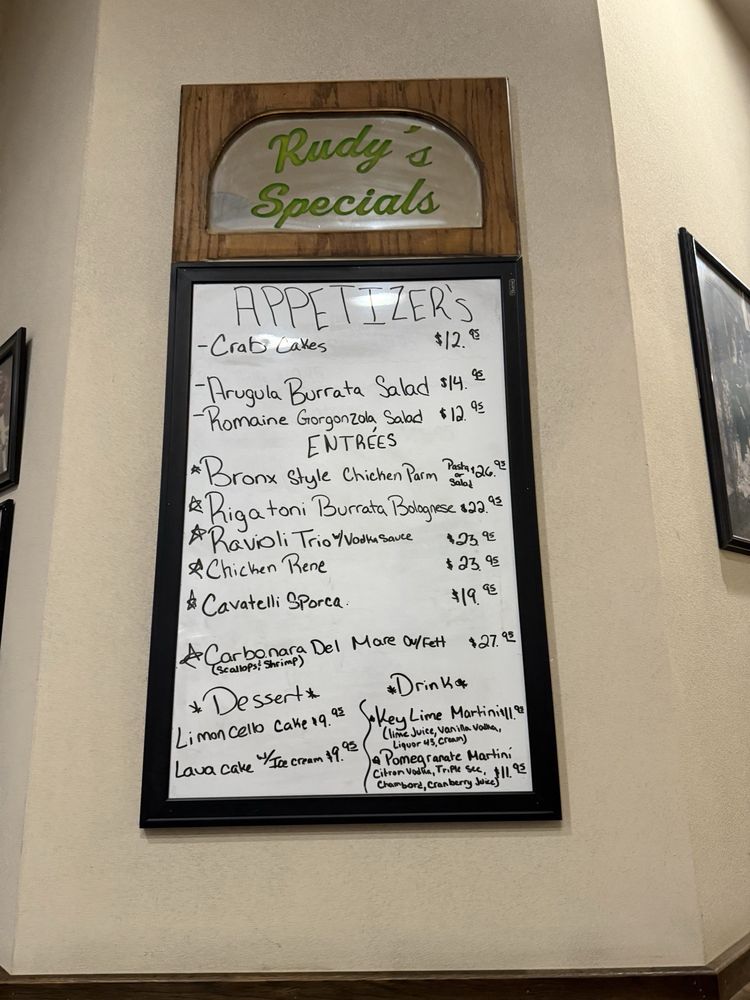 Rudy's
Specials
APPETIZER's
-Crab Cakes $12.95
-Arugula Burrata Salad $14.95
-Romaine Gorgonzola Salad $12.95
ENTRÉES
☆Bronx Style Chicken Parm Pasta or Salad $26.95
☆Rigatoni Burrata Bolognese $22.95
☆Ravioli Trio w/Vodka Sauce $23.95
☆Chicken Rene $23.95
☆Cavatelli Sporca. $19.95
☆Carbonara Del Mare Ov/Fett $27.95
(Scallops & Shrimp)
*Dessert*
Limoncello Cake $9.95
Lava Cake w/Ice cream $9.95
*Drink*
*Key Lime Martini $11.95
(lime Juice, Vanilla Vodka,
Liquor 43, Cream)
*Pomegranate Martini
Citron Vodka, Triple Sec, $11.95
Chambord, Cranberry Juice)